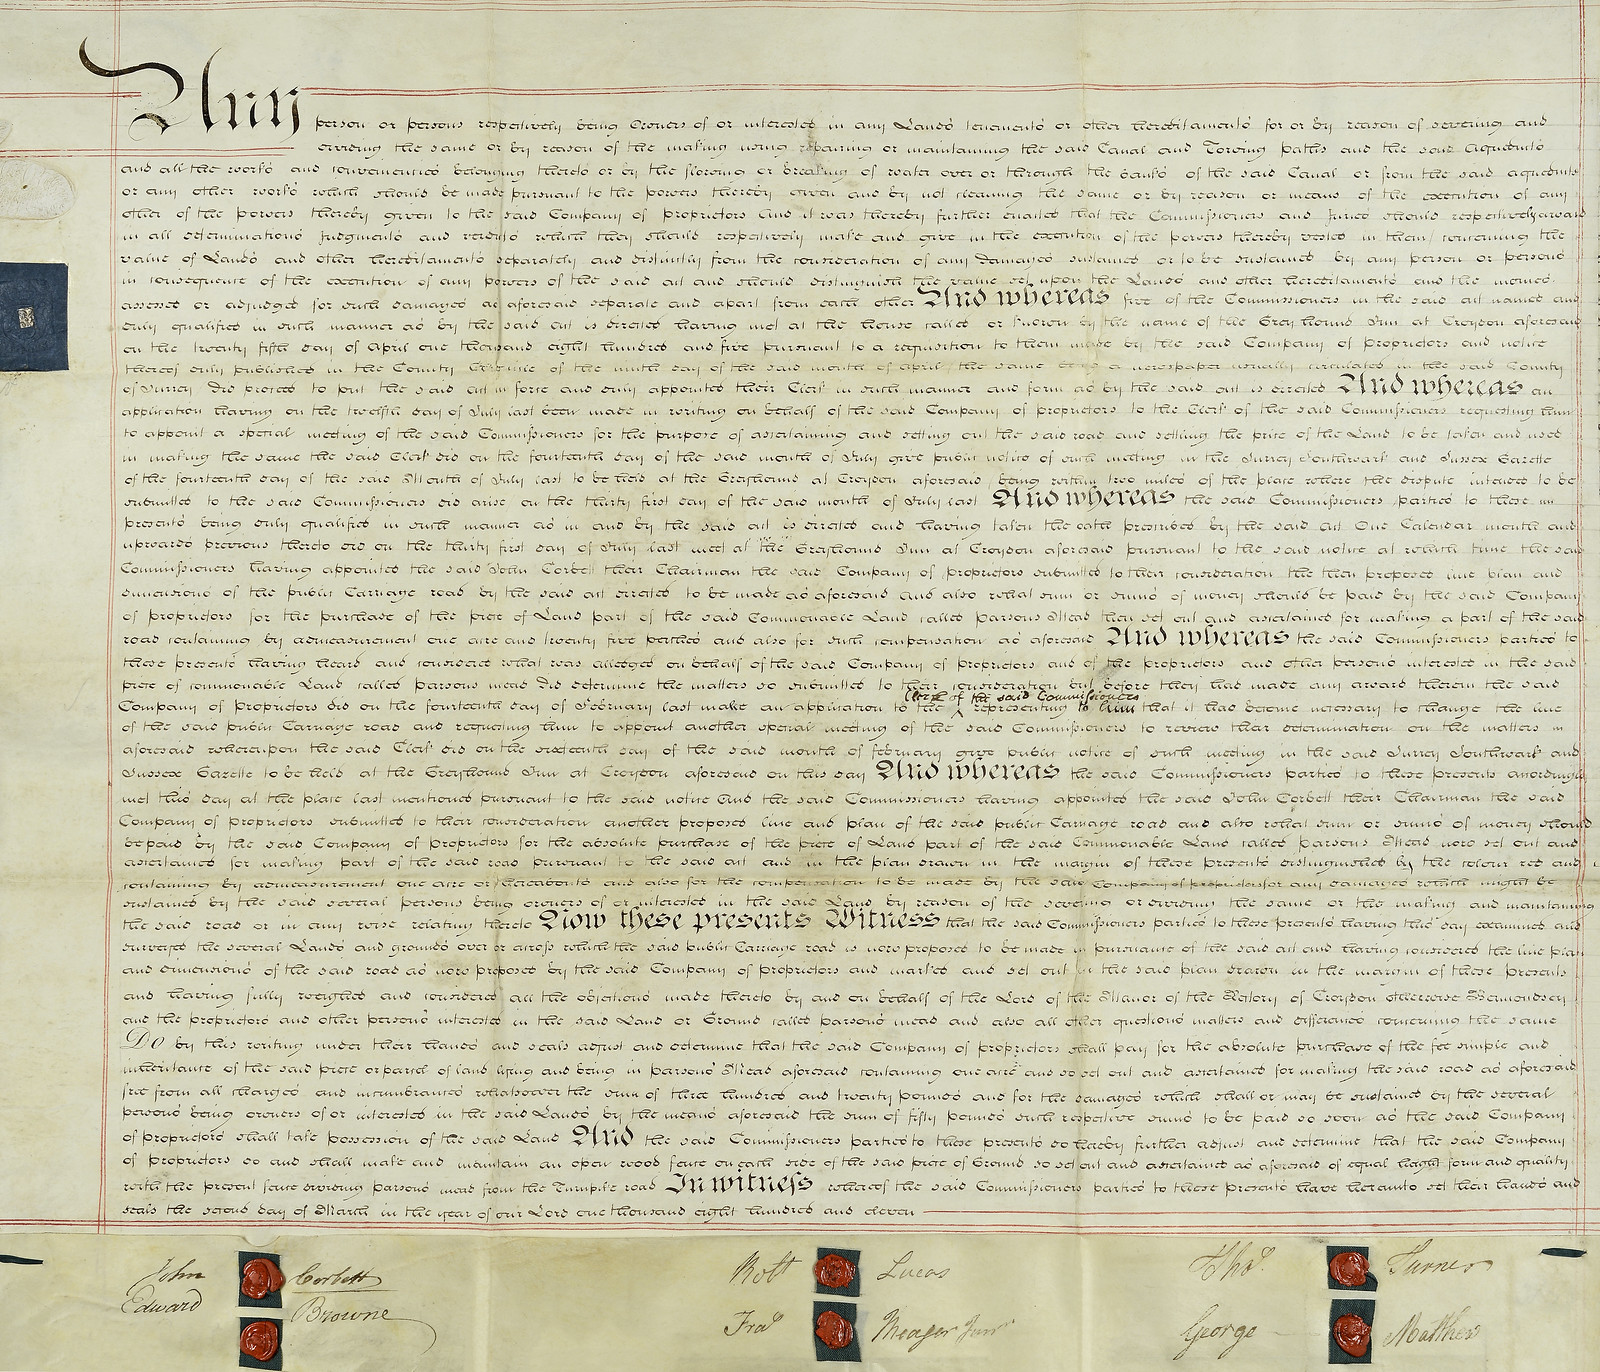 Any person or persons respectively being Owners of or interested in any Lands tenements or other hereditaments for or by reason of severing and
dividing the same or by reason of the making using repairing or maintaining the said Canal and Towing paths and the said aqueducts
and all the works and conveniences belonging thereto or by the flowing or breaking of water over or through the banks of the said Canal or from the said aqueducts
or any other works which should be made pursuant to the powers thereby given and by not cleansing the same or by reason or means of the execution of any
other of the powers thereby given to the said Company of proprietors And it was thereby further enacted that the Commissioners and Juries should respectively award
in all determinations Judgments and verdicts which they should respectively make and give in the execution of the powers thereby vested in them concerning the
value of Lands and other hereditaments separately and distinctly from the consideration of any damages sustained or to be sustained by any person or persons
in consequence of the execution of any powers of the said act and should distinguish the value set upon the Lands and other hereditaments and the monies
assessed or adjudged for such damages as aforesaid separate and apart from each other And whereas five of the Commissioners in the said act named and
duly qualified in such manner as by the said act is directed having met at the house called or known by the name of the Greyhound Inn at Croydon aforesaid
on the twenty fifth day of April one thousand eight hundred and five pursuant to a requisition to them made by the said Company of proprietors and notice
thereof duly published in the County Chronicle of the ninth day of the said month of april the same being a newspaper usually circulated in the said County
of Surrey Did proceed to put the said act in force and duly appointed their Clerk in such manner and form as by the said act is directed And whereas an
application having on the twelfth day of July last been made in writing on behalf of the said Company of proprietors to the Clerk of the said Commissioners requesting him
to appoint a special meeting of the said Commissioners for the purpose of ascertaining and setting out the said road and settling the price of the Land to be taken and used
in making the same the said Clerk did on the fourteenth day of the said month of July give public notice of such meeting in the Surrey Southwark and Sussex Gazette
of the fourteenth day of the said Month of July last to be held at the Greyhound at Croydon aforesaid being within two miles of the place where the dispute intended to be
submitted to the said Commissioners did arise on the thirty first day of the said month of July last And whereas the said Commissioners parties to these
presents being duly qualified in such manner as in and by the said act is directed and having taken the oath prescribed by the said act One Calendar month and
upwards previous thereto did on the thirty first day of July last meet at the Greyhound Inn at Croydon aforesaid pursuant to the said notice at which time the said
Commissioners having appointed the said John Corbett their Chairman the said Company of proprietors submitted to their consideration the then proposed line plan and
dimensions of the public Carriage road by the said act directed to be made as aforesaid and also what sum or sums of money should be paid by the said Company
of proprietors for the purchase of the piece of Land part of the said Commonable Land called Parsons Mead then set out and ascertained for making a part of the said
road containing by admeasurement one acre and twenty five perches and also for such compensation as aforesaid And whereas the said Commissioners parties to
these presents having heard and considered what was alledged on behalf of the said Company of proprietors and of the proprietors and other persons interested in the said
piece of commonable Land called Parsons mead Did determine the matters so submitted to their consideration but before they had made any award therein the said
Clerk of the said Commissioners
Company of Proprietors did on the fourteenth day of February last make an application to the representing to him that it had become necessary to change the line
of the said public Carriage road and requesting him to appoint another special meeting of the said Commissioners to review their determination on the matters
aforesaid whereupon the said Clerk did on the sixteenth day of the said month of february give public notice of such meeting in the said Surrey Southwark and
Sussex Gazette to be held at the Greyhound Inn at Croydon aforesaid on this day And whereas the said Commissioners parties to these presents accordingly
met this day at the place last mentioned pursuant to the said notice And the said Commissioners having appointed the said John Corbett their Chairman the said
Company of proprietors submitted to their consideration another proposed line and plan of the said public Carriage road and also what sum or sums of money should
be paid by the said Company of proprietors for the absolute purchase of the piece of Land part of the said Commonable Land called Parsons Mead now set out and
ascertained for making part of the said road pursuant to the said act and in the plan drawn in the margin of these presents distinguished by the colour red and
containing by admeasurement one acre or thereabouts and also for the compensation to be made by the said Company of proprietors for any damages which might be
sustained by the said several persons being owners of or interested in the said Land by reason of the severing or dividing the same or the making and maintaining
the said road or in any wise relating thereto Now these presents Witness that the said Commissioners parties to these presents having this day examined and
surveyed the several Lands and grounds over or across which the said public Carriage road is now proposed to be made in pursuance of the said act and having considered the line plan
and dimensions of the said road as now proposed by the said Company of proprietors and marked and set out in the said plan drawn in the margin of these presents
and having fully weighed and considered all the objections made thereto by and on behalf of the Lord of the Manor of the Rectory of Croydon otherwise Bermondsey
and the proprietors and other persons interested in the said Land or Ground called parsons mead and also all other questions matters and differences concerning the same
Do by this writing under their hands and seals adjust and determine that the said Company of proprietors shall pay for the absolute purchase of the fee simple and
inheritance of the said piece or parcel of land lying and being in Parsons Mead aforesaid containing one acre and so set out and ascertained for making the said road as aforesaid
free from all charges and incumbrances whatsoever the sum of three hundred and twenty pounds and for the damages which shall or may be sustained by the several
persons being owners of or interested in the said Lands by the means aforesaid the sum of fifty pounds such respective sums to be paid so soon as the said Company
of proprietors shall take possession of the said Land And the said Commissioners parties to these presents do hereby further adjust and determine that the said Company
of proprietors do and shall make and maintain an open wood fence on each side of the said piece of Ground so set out and ascertained as aforesaid of equal height form and quality
with the present fence dividing Parsons mead from the Turnpike road In witness whereof the said Commissioners parties to these presents have hereunto set their hands and
seals the second day of March in the year of our Lord one thousand eight hundred and eleven
John Corbett Robt Lucas Thos. Turner
Edward Browne Fras Meager Junr George Matthew